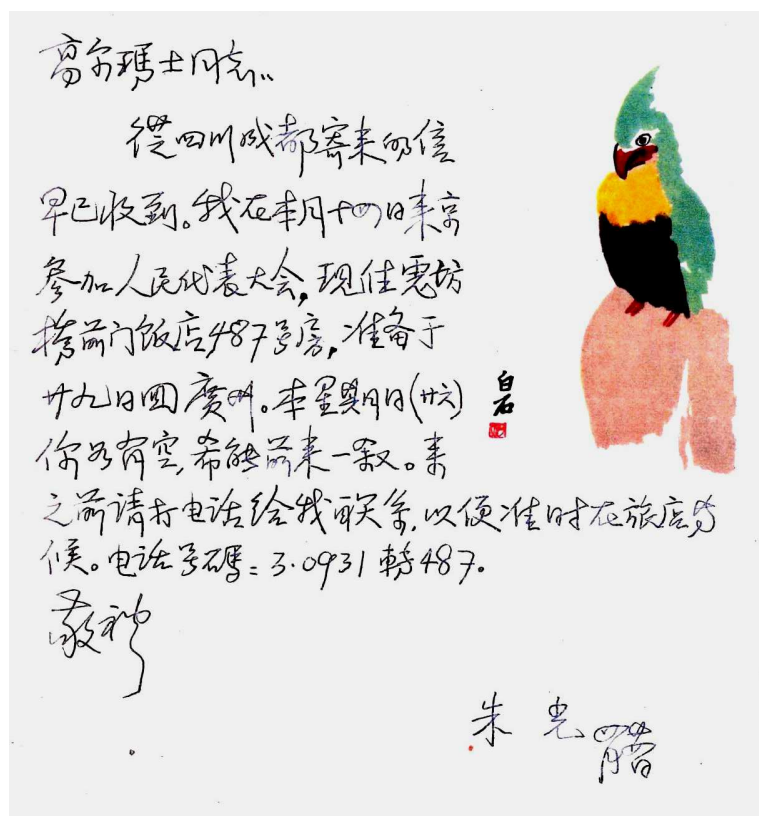 高尔瑪士同志:
從四川成都寄来的信
早已收到。我在本月十四日来京
参加人民代表大会,现住惠坊
橋前门饭店487号房,准备于
廿九日囬廣州。本星期日(廿六)
你如有空,希能前来一叙。来
之前请打电话给我联系,以便准时在旅店
候。电话号碼:3.0931轉487。
敬礼
朱光
白石